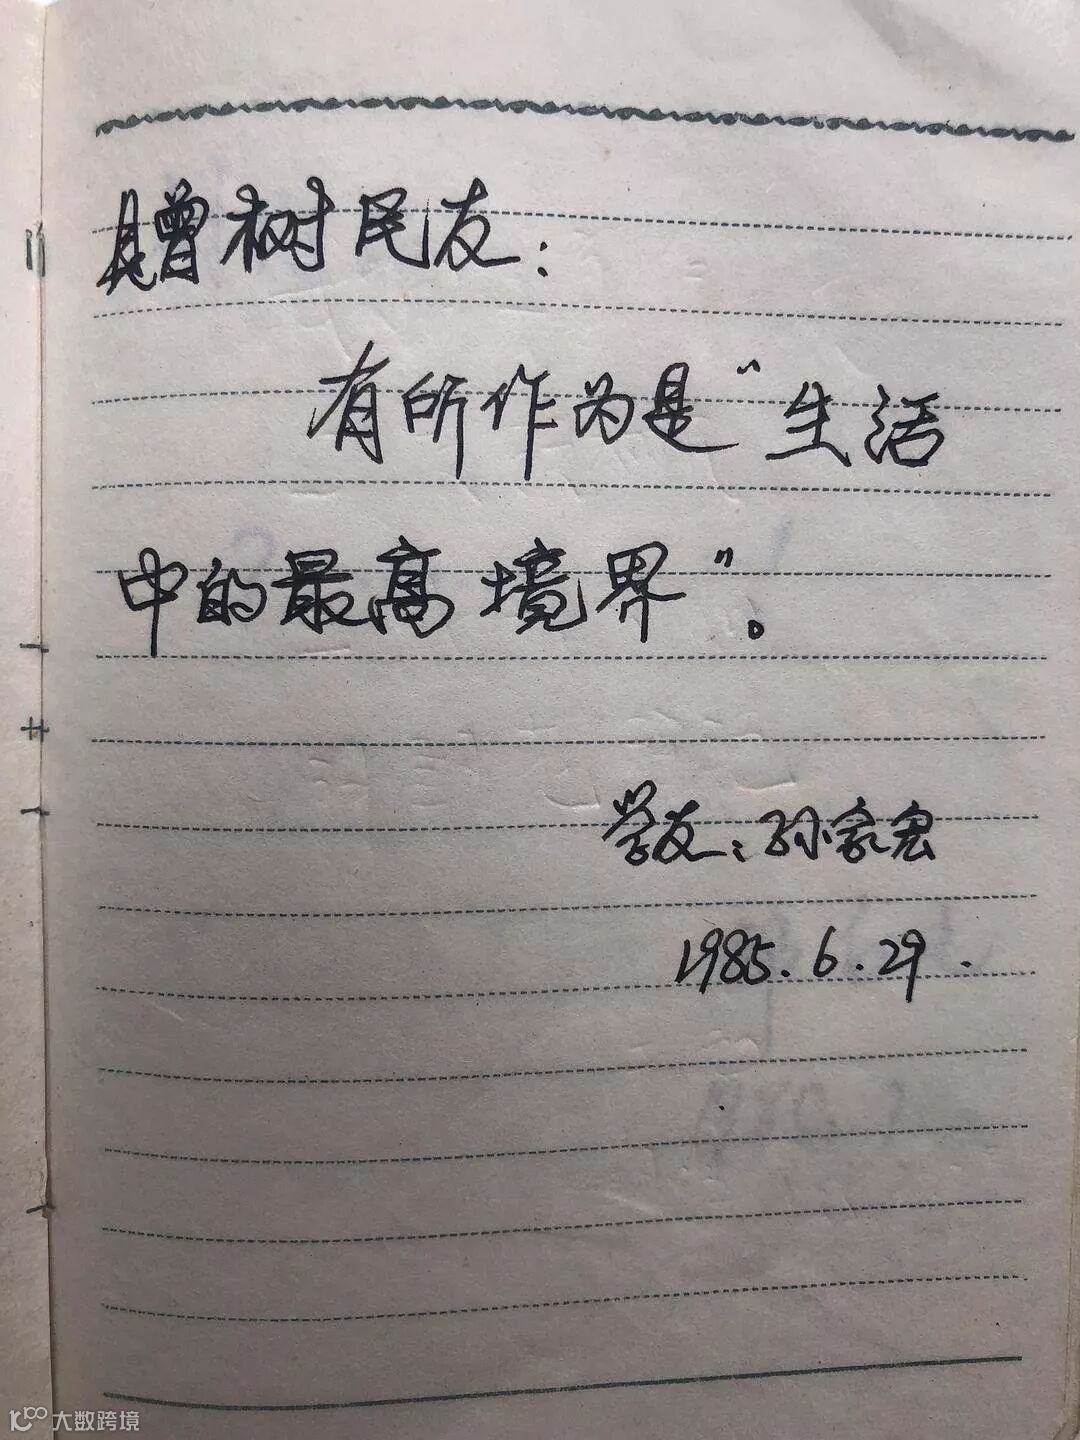 赠树民友：
有所作为是“生活
中的最高境界”。
学友：孙家宏
1985.6.29.
大数跨境